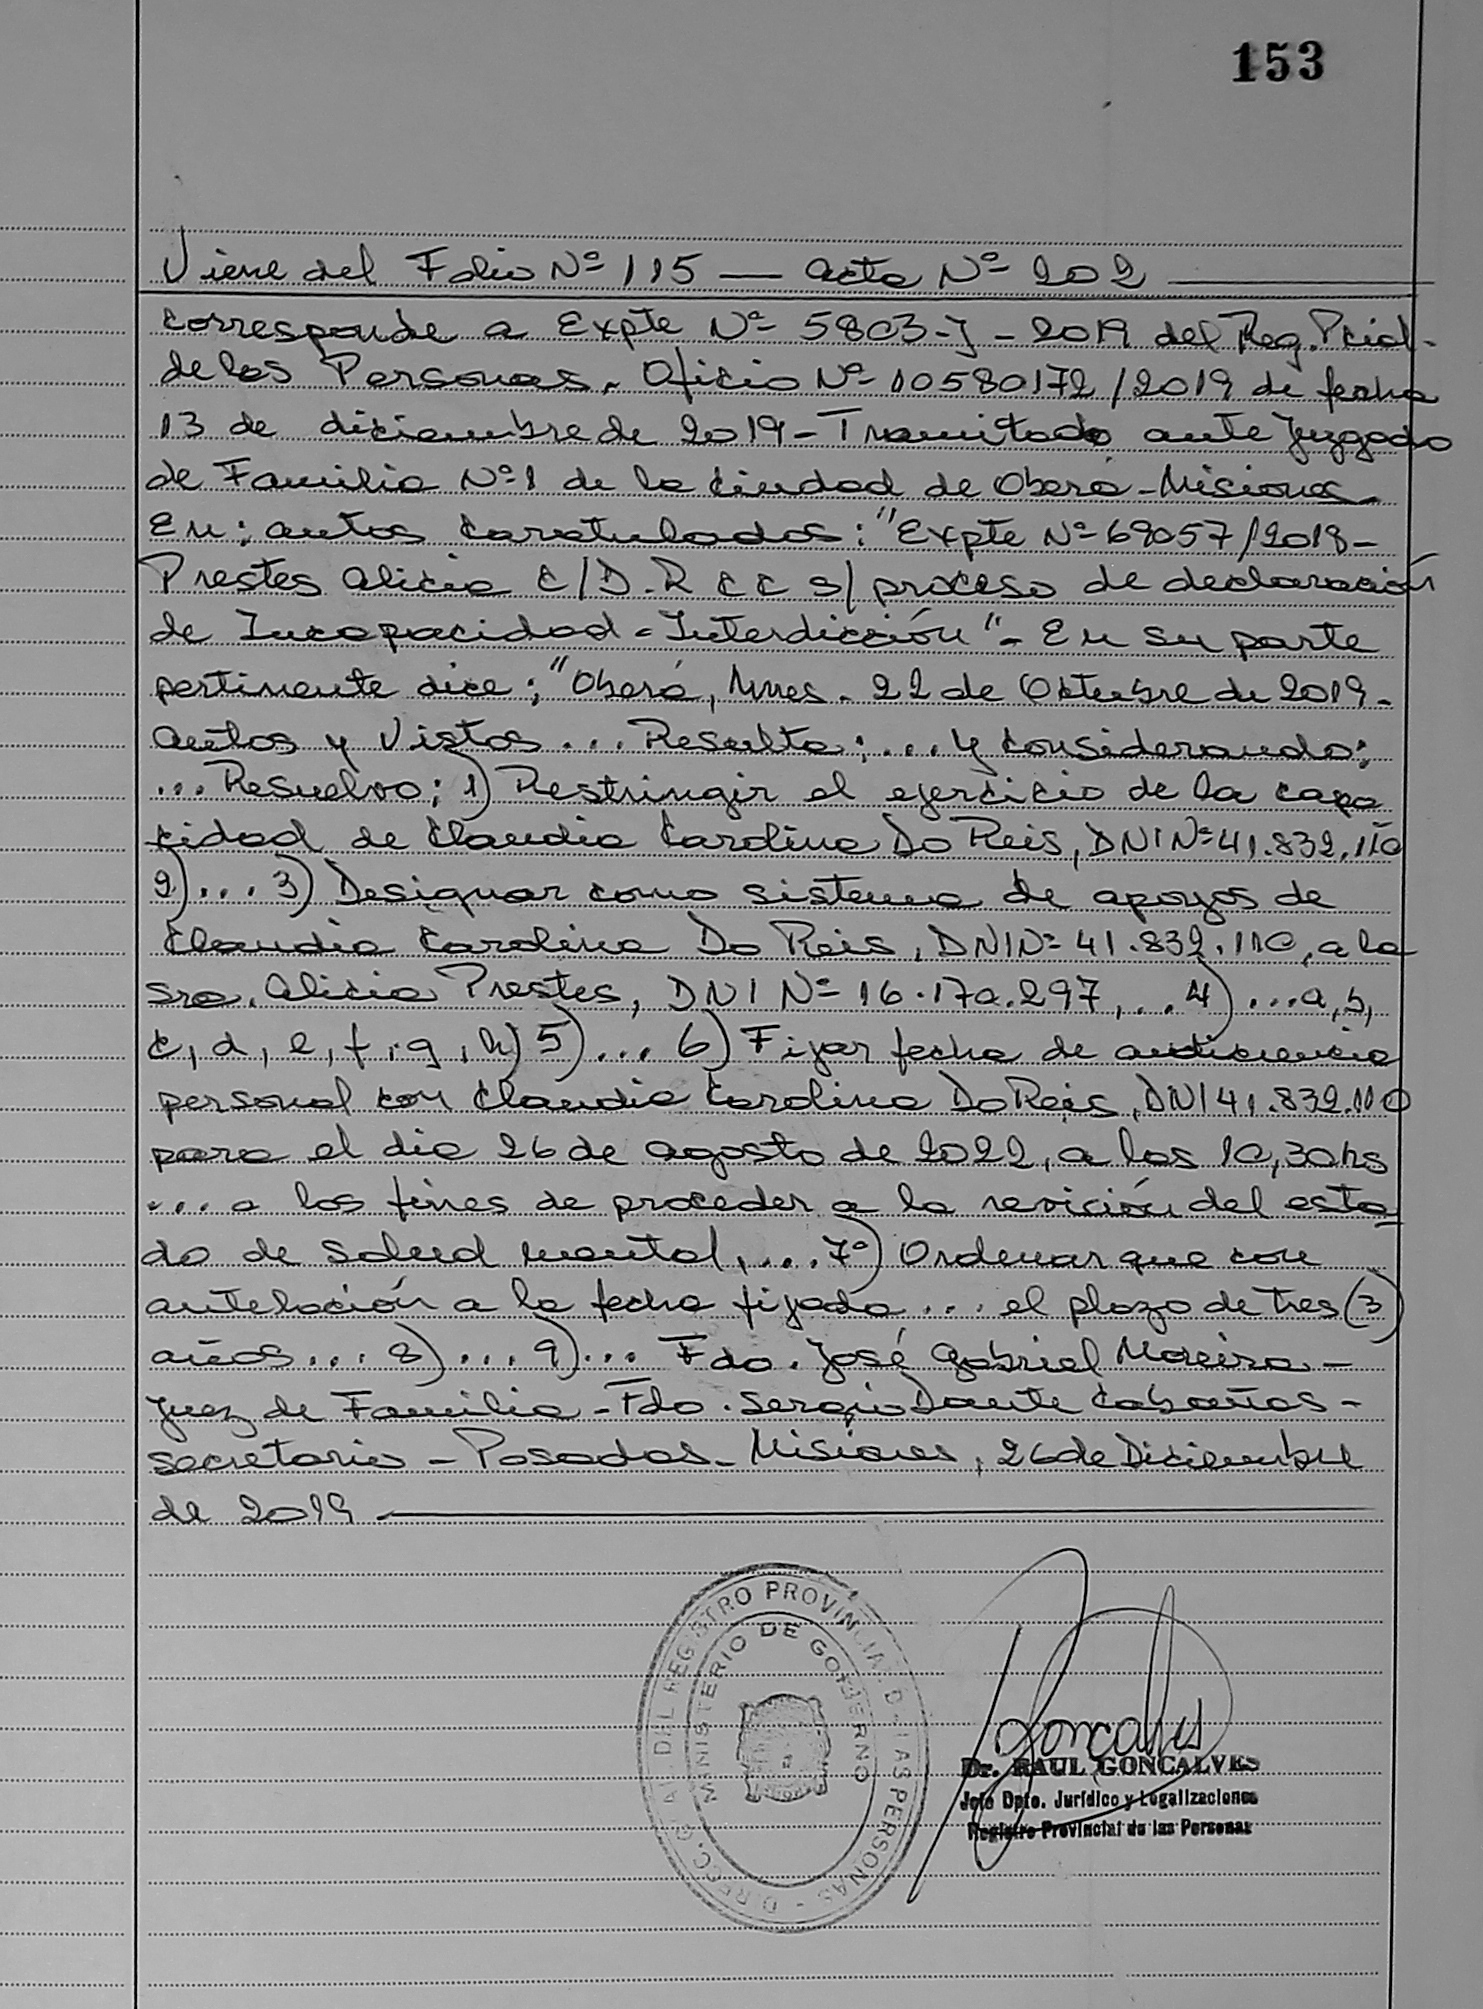 153
Viene del Folio Nº 115 — acta Nº 202
corresponde a Expte Nº 5803-J-2019 del Reg. Pcial.
de las Personas. Oficio Nº 10580172/2019 de fecha
13 de diciembre de 2019 - Tramitado ante Juzgado
de Familia Nº 1 de la ciudad de Oberá - Misiones
En: autos caratulados: "Expte Nº 69057/2018 -
Prestes Alicia C/D.R C C s/ proceso de declaración
de Incapacidad - Interdicción" - En su parte
pertinente dice: "Oberá, Mnes. 22 de Octubre de 2019 -
autos y Vistos ... Resulta: ... y considerando:
... Resuelvo: 1) Restringir el ejercicio de la capa
cidad de Claudia Carolina Do Reis, DNI Nº 41.832.110
2) ... 3) Designar como sistema de apoyos de
Claudia Carolina Do Reis, DNI Nº 41.832.110, a la
sra. Alicia Prestes, DNI Nº 16.170.297, ... 4) ... a, b,
c, d, e, f, g, h) 5) ... 6) Fijar fecha de audiencia
personal con Claudia Carolina Do Reis, DNI 41.832.110
para el día 26 de agosto de 2022, a las 10,30 hs
... a los fines de proceder a la revición del esta
do de salud mental, ... 7º) Ordenar que con
antelación a la fecha fijada ... el plazo de tres (3)
años ... 8) ... 9) ... Fdo. José Gabriel Moreira -
Juez de Familia - Fdo. Sergio Dante Cabañas -
secretario - Posadas - Misiones, 26 de Diciembre
de 2019
DIRECC. GRAL. DEL REGISTRO PROVINCIAL DE LAS PERSONAS
MINISTERIO DE GOBIERNO
Goncalves
Dr. RAUL GONCALVES
Jefe Dpto. Jurídico y Legalizaciones
Registro Provincial de las Personas